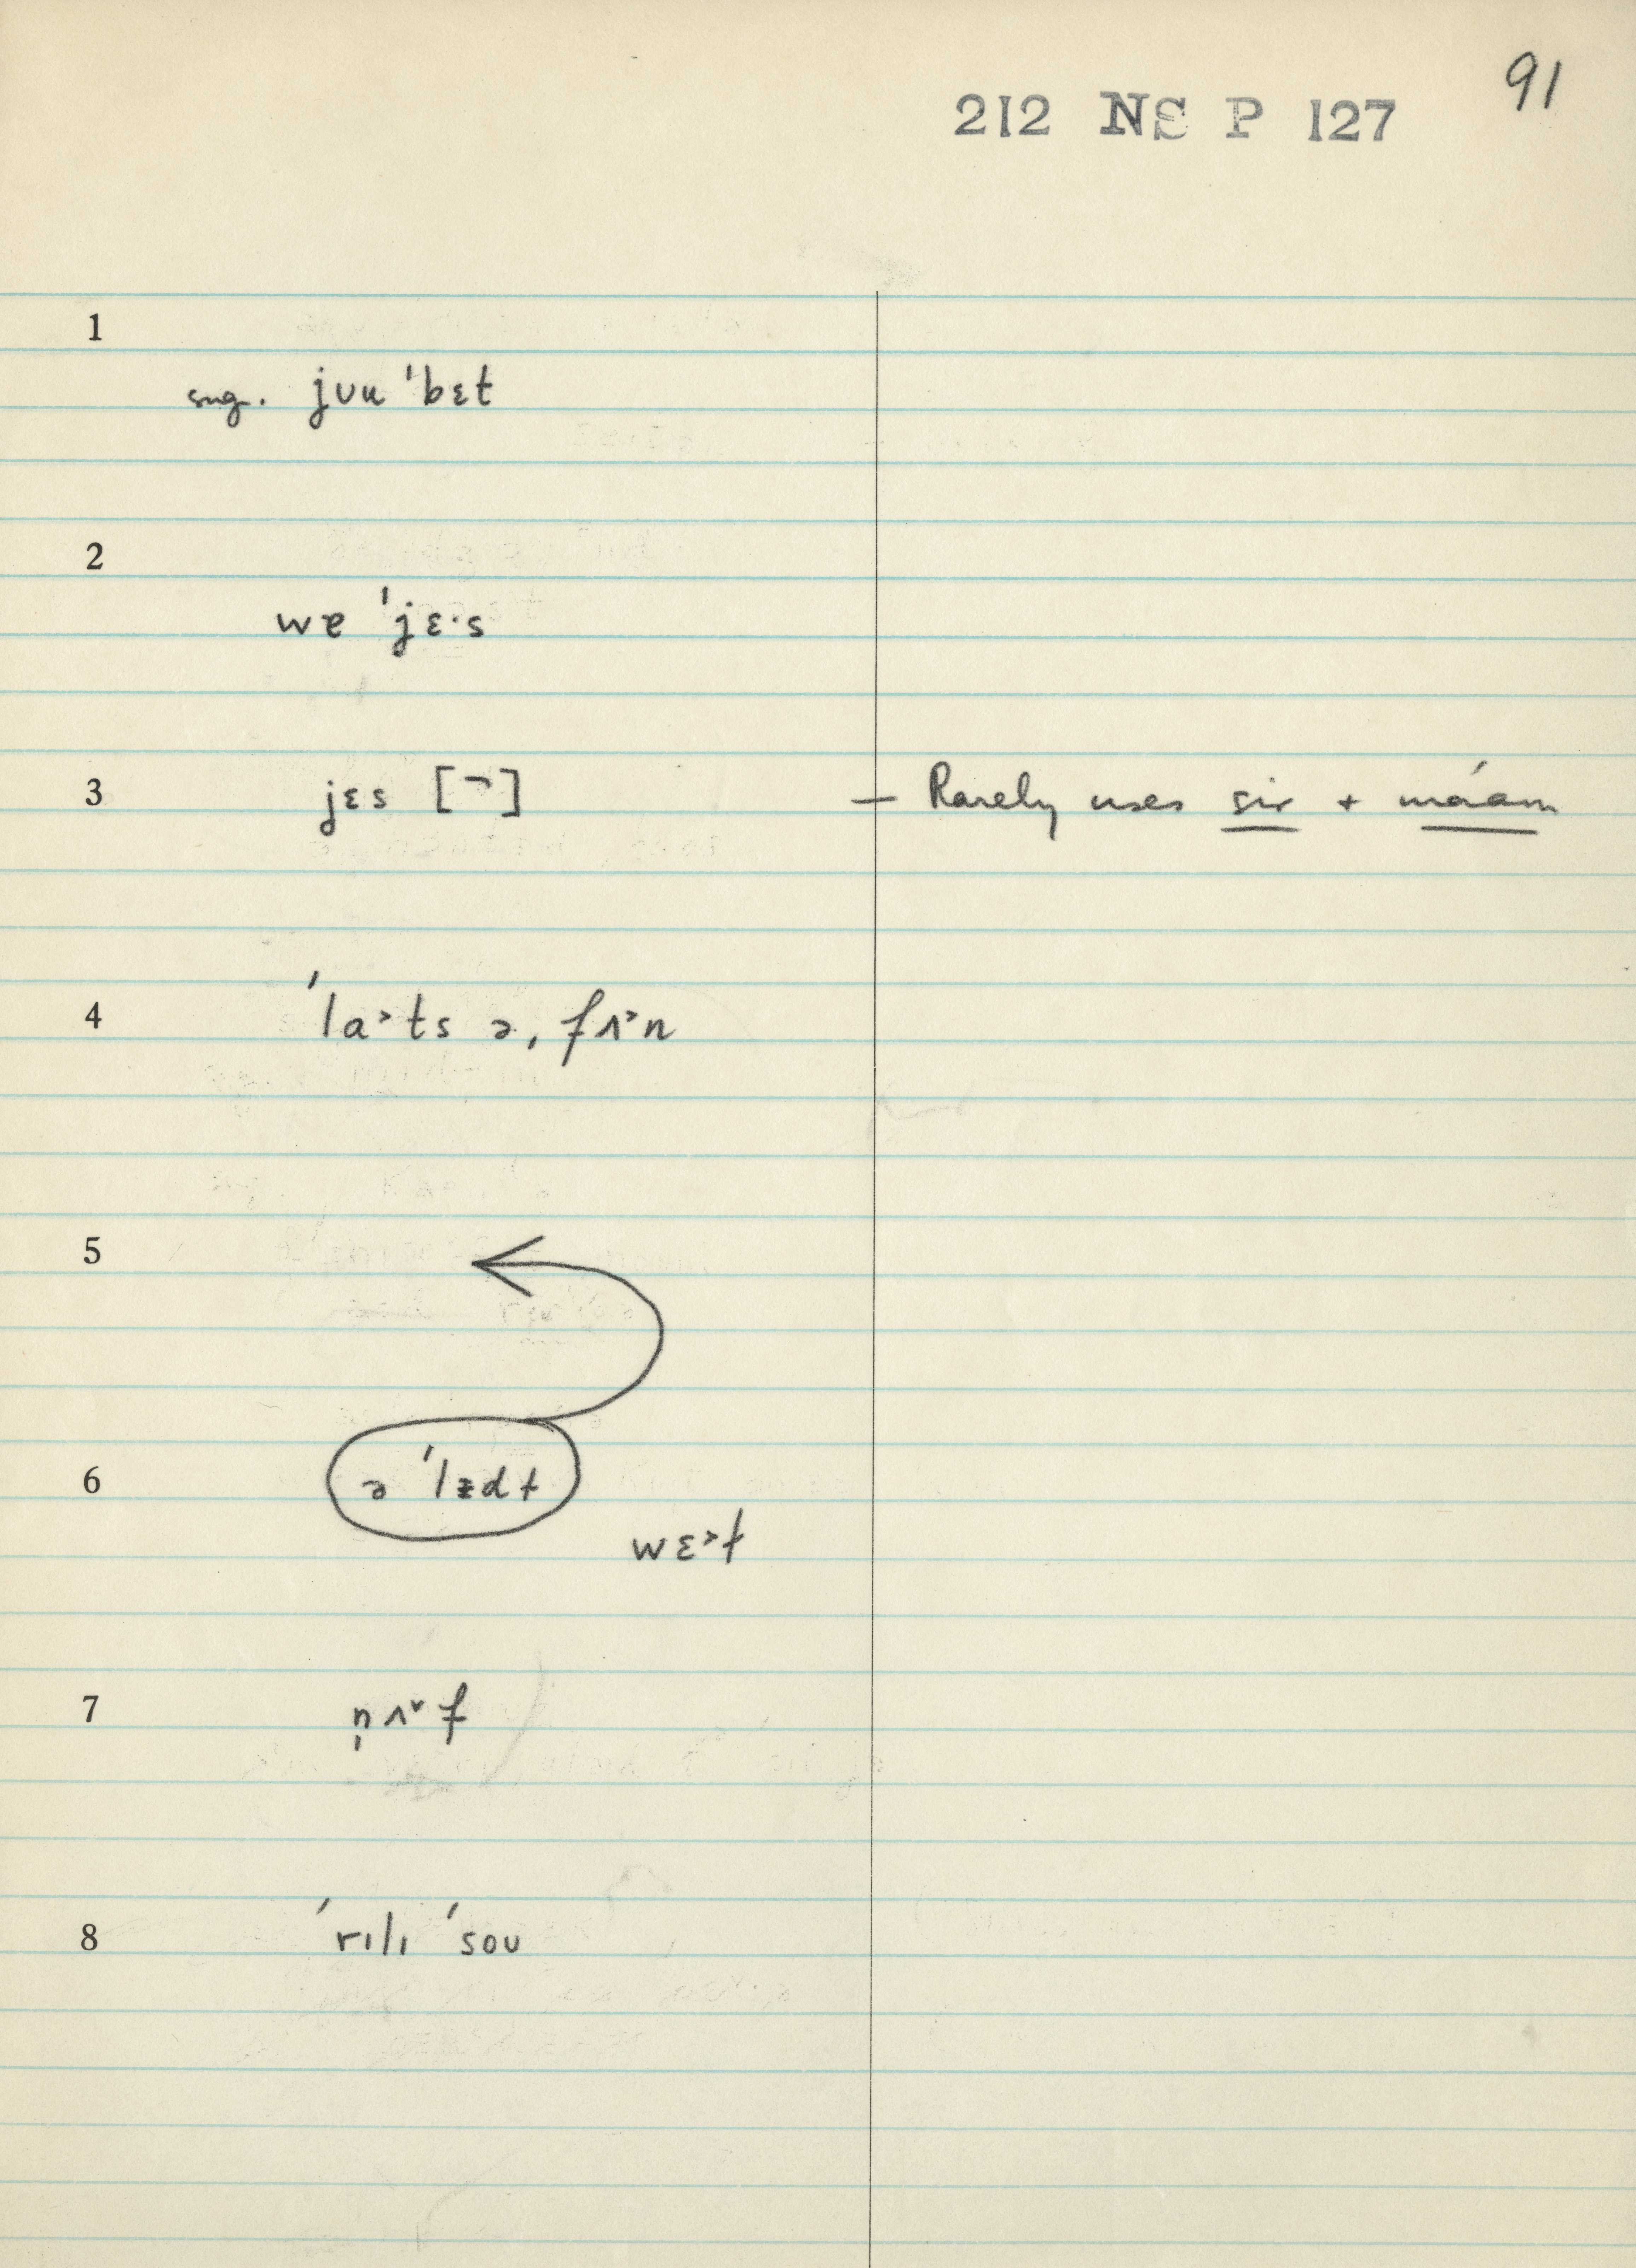 91
212 NS P 127
1
sug. jʊu ˈbɛt
2
wɐ ˈjɛ·s
3 jɛs [¬] — Rarely uses sir + máam
4 ˈla˃ts ə ˌfʌ˃n
5
6 ə ˈlædɫ
wɛ˃ɫ
7 n̩ʌ˅f
8 ˈrɪlɪ ˈsoʊ